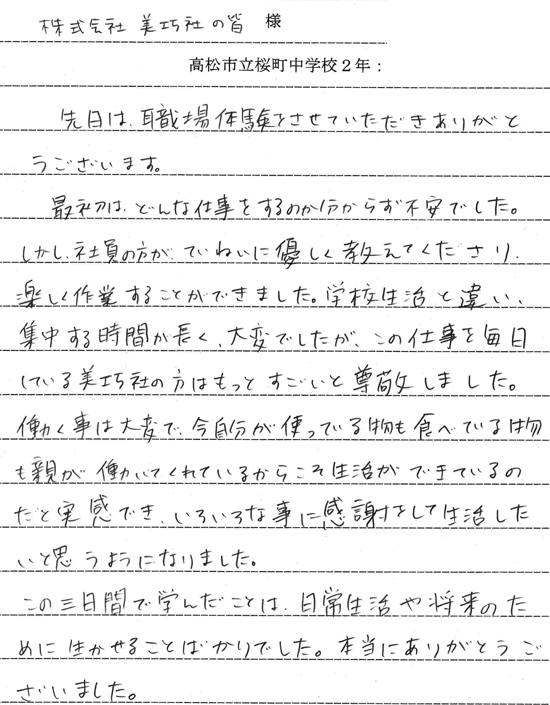 株式会社 美巧社の皆 様
高松市立桜町中学校2年:
先日は、職場体験をさせていただきありがと
うございます。
最初は、どんな仕事をするのか分からず不安でした。
しかし、社員の方が、ていねいに優しく教えてくださり、
楽しく作業することができました。学校生活と違い、
集中する時間が長く、大変でしたが、この仕事を毎日
している美巧社の方はもっとすごいと尊敬しました。
働く事は大変で、今自分が使っている物も食べている物
も親が働いてくれているからこそ生活ができているの
だと実感でき、いろいろな事に感謝をして生活した
いと思うようになりました。
この三日間で学んだことは、日常生活や将来のた
めに生かせることばかりでした。本当にありがとうご
ざいました。